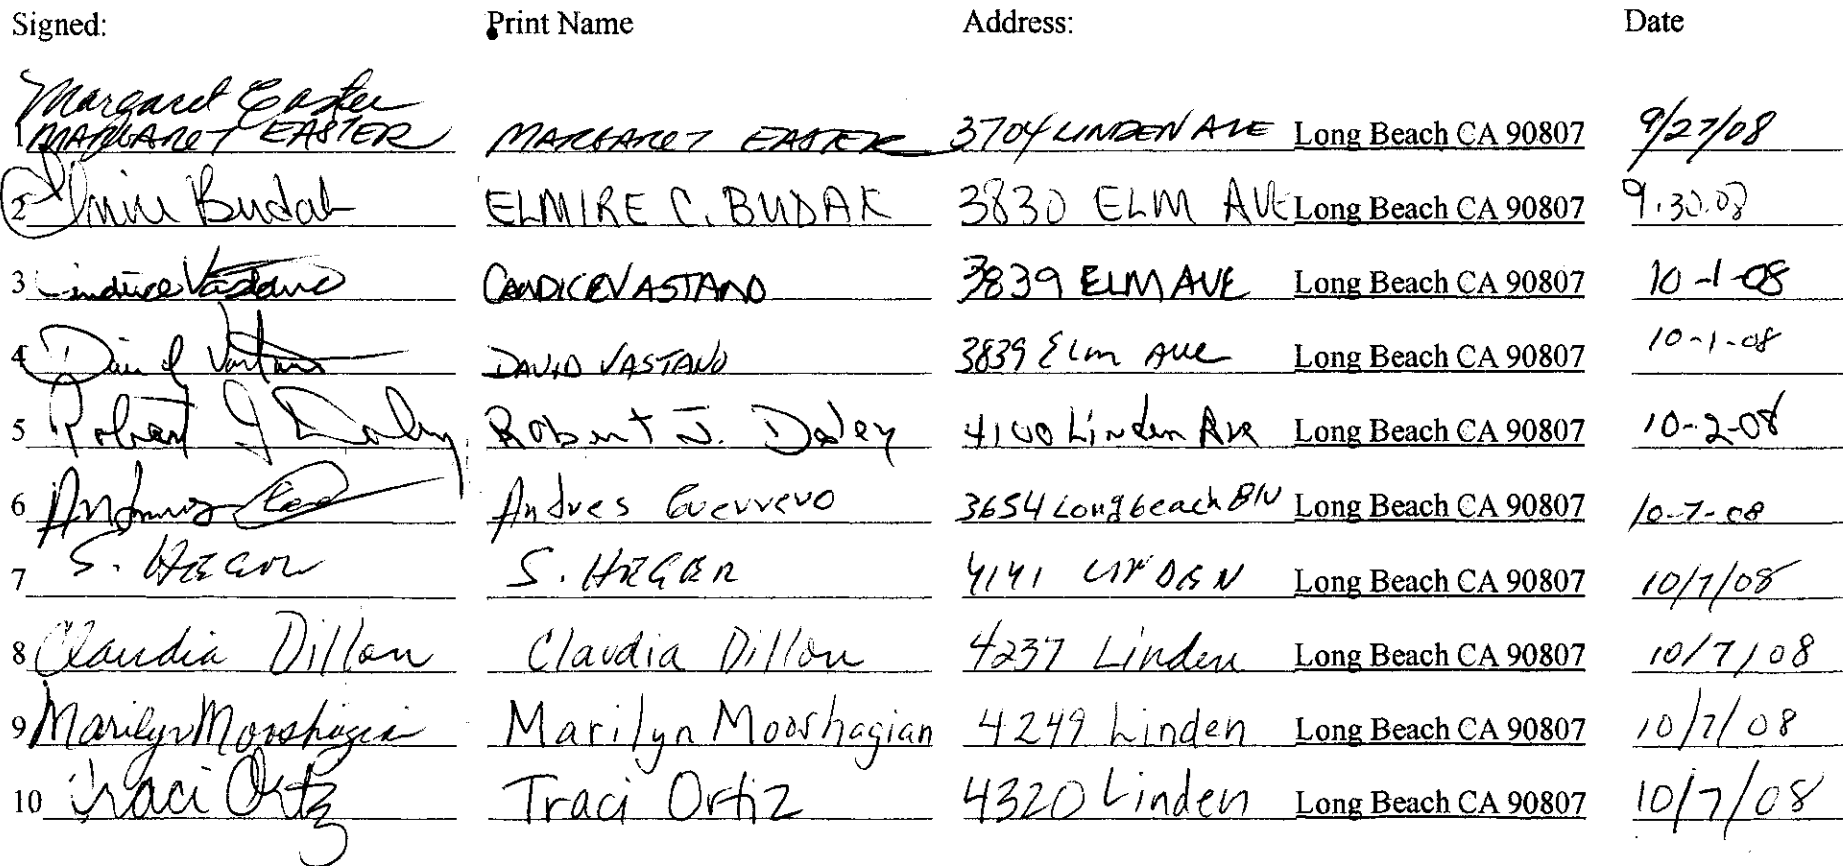 Signed: Print Name Address: Date
Margaret Easter
1 MARGARET EASTER MARGARET EASTER 3704 LINDEN AVE Long Beach CA 90807 9/27/08
2 Elmire Budak ELMIRE C. BUDAK 3830 ELM AVE Long Beach CA 90807 9.30.08
3 Candice Vastano CANDICE VASTANO 3839 ELM AVE Long Beach CA 90807 10-1-08
4 David Vastano DAVID VASTANO 3839 Elm Ave Long Beach CA 90807 10-1-08
5 Robert J Daley Robert J. Daley 4100 Linden Ave Long Beach CA 90807 10-2-08
6 Andres Guerrero 3654 Longbeach Blv Long Beach CA 90807 10-7-08
7 S. HEGER S. HEGER 4141 LINDEN Long Beach CA 90807 10/7/08
8 Claudia Dillon Claudia Dillon 4237 Linden Long Beach CA 90807 10/7/08
9 Marilyn Mooshagian Marilyn Mooshagian 4249 Linden Long Beach CA 90807 10/7/08
10 Traci Ortiz Traci Ortiz 4320 Linden Long Beach CA 90807 10/7/08